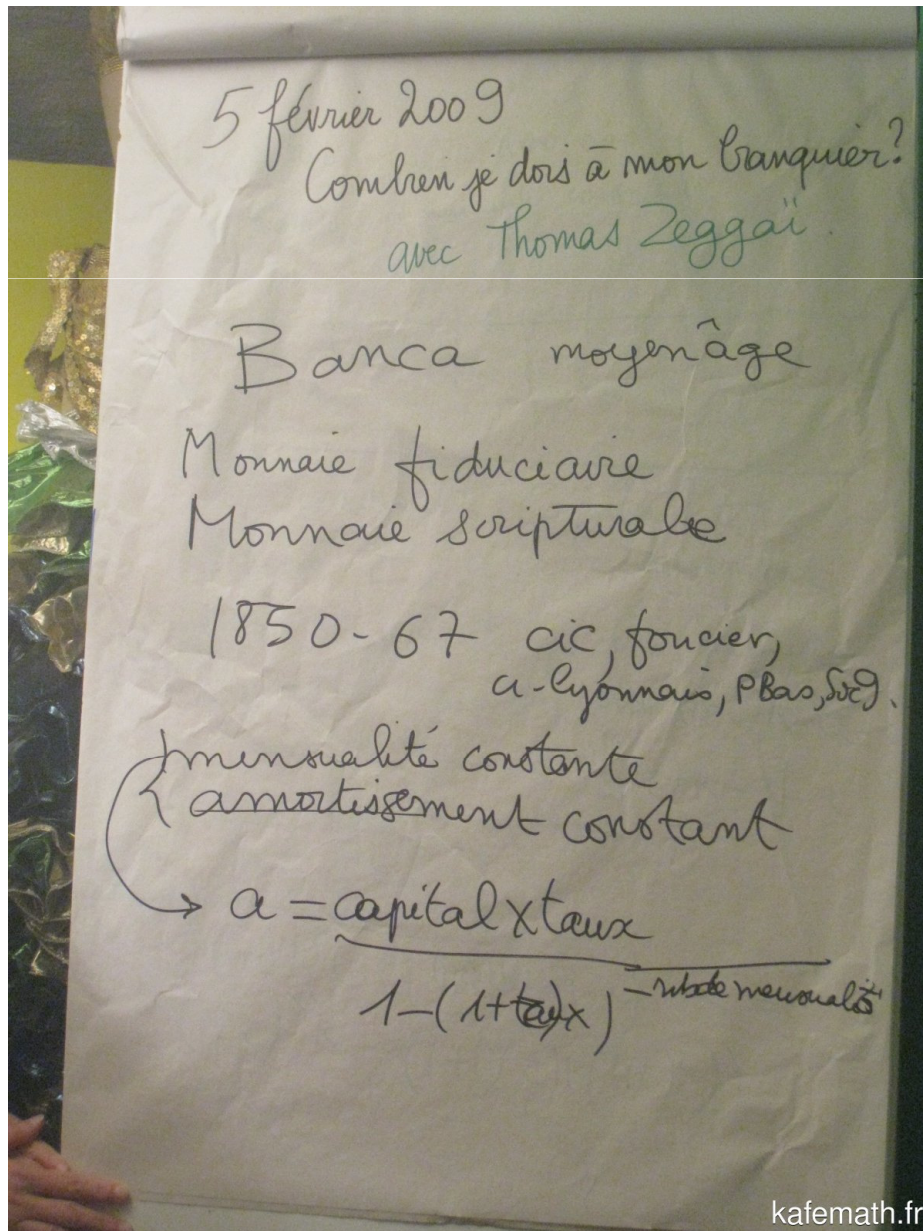 5 février 2009
Combien je dois à mon banquier?
avec Thomas Zeggaï.
Banca moyen âge
Monnaie fiduciaire
Monnaie scripturale
1850-67 cic, foncier,
a-lyonnais, PBas, Socg.
mensualité constante
amortissement constant
a = capital x taux
1-(1+taux) -nb de mensualités
kafemath.fr